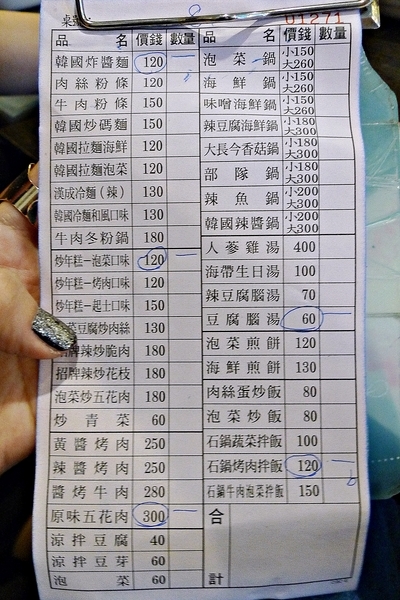 桌
01271
品名 價錢 數量
韓國炸醬麵 120 一
肉絲粉條 120
牛肉粉條 150
韓國炒碼麵 150
韓國拉麵海鮮 120
韓國拉麵泡菜 120
漢成冷麵(辣) 130
韓國冷麵和風口味 130
牛肉冬粉鍋 180
炒年糕–泡菜口味 120 一
炒年糕–烤肉口味 120
炒年糕–起士口味 150
菜豆腐炒肉絲 130
招牌辣炒脆肉 180
招牌辣炒花枝 180
泡菜炒五花肉 180
炒青菜 60
黃醬烤肉 250
辣醬烤肉 250
醬烤牛肉 280
原味五花肉 300 一
涼拌豆腐 40
涼拌豆芽 60
泡菜 60
品名 價錢 數量
泡菜鍋 小150 大260
海鮮鍋 小150 大260
味噌海鮮鍋 小150 大260
辣豆腐海鮮鍋 小180 大300
大長今香菇鍋 小180 大300
部隊鍋 小180 大300
辣魚鍋 小200 大300
韓國辣醬鍋 小200 大300
人蔘雞湯 400
海帶生日湯 100
辣豆腐腦湯 70
豆腐腦湯 60 一
泡菜煎餅 120
海鮮煎餅 130
肉絲蛋炒飯 80
泡菜炒飯 80
石鍋蔬菜拌飯 100
石鍋烤肉拌飯 120 一
石鍋牛肉泡菜拌飯 150
合計